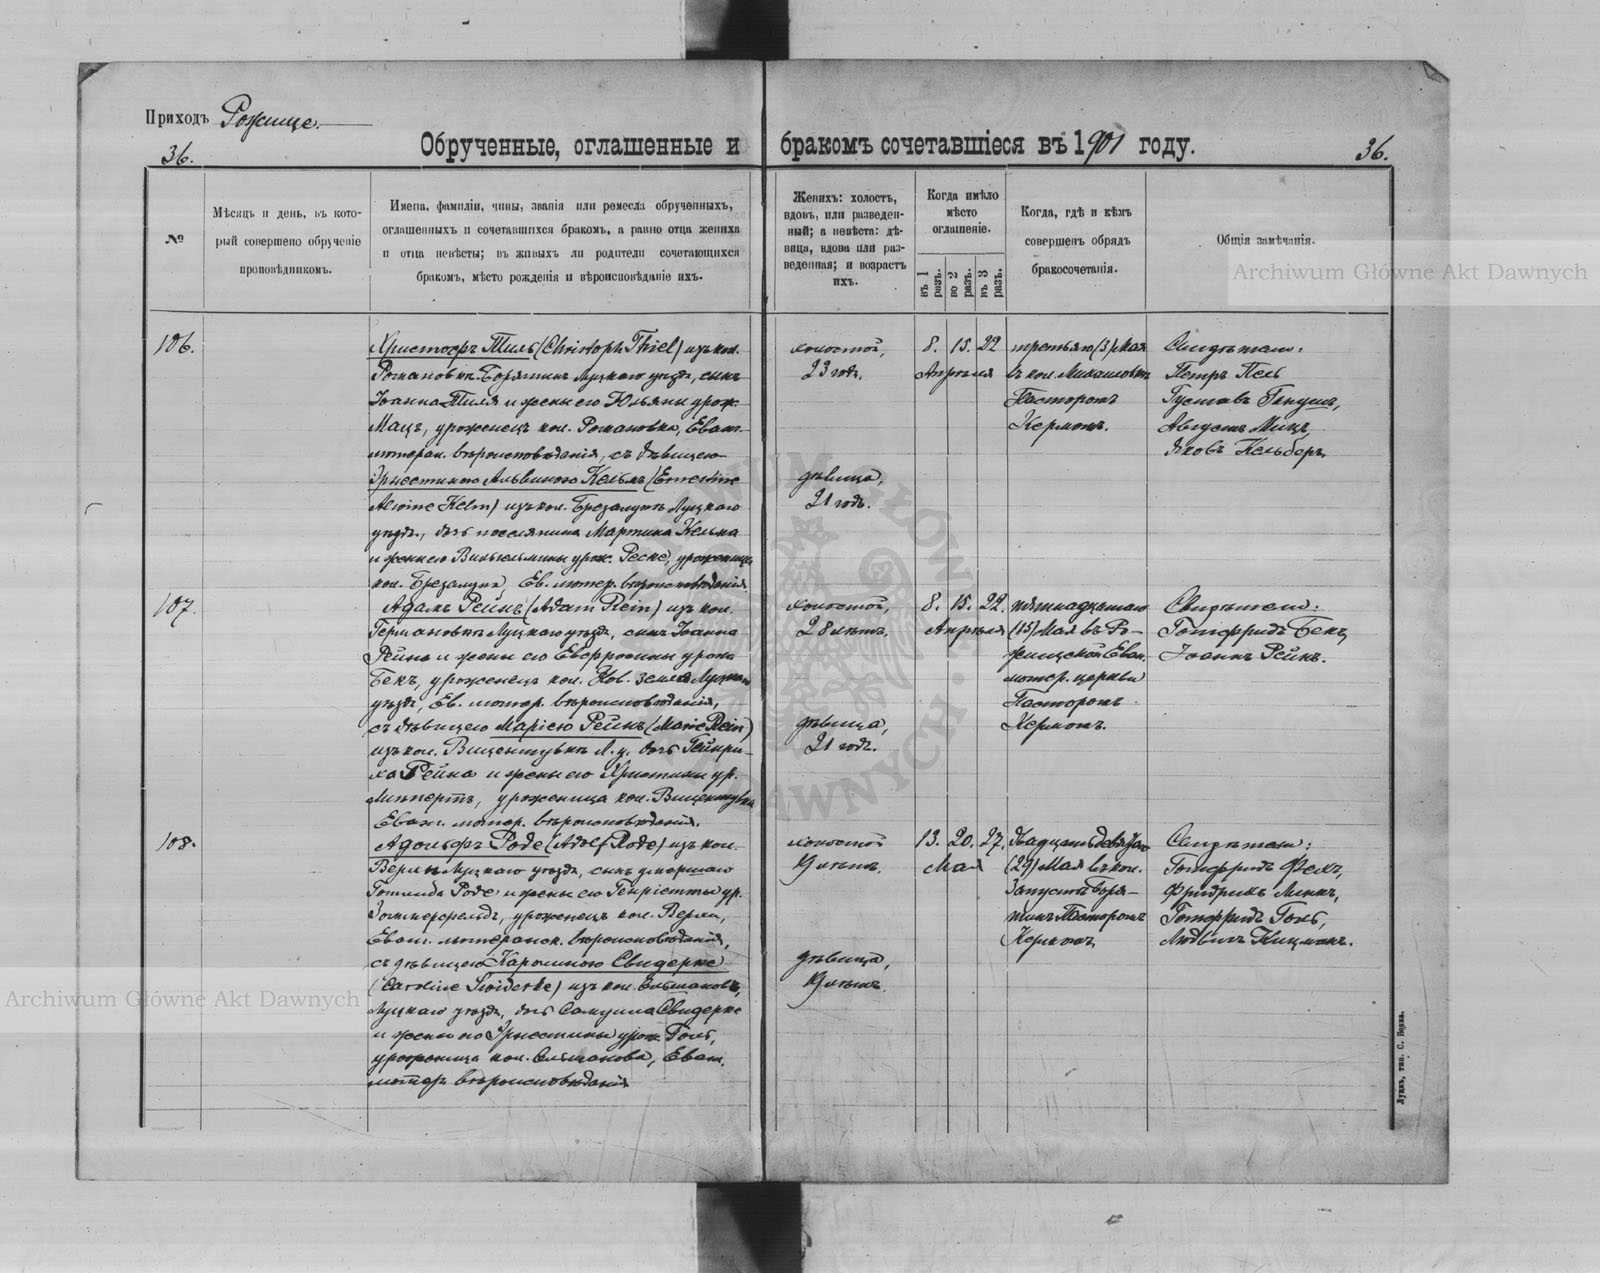 Приходъ Рожище.
36.
Обрученные, оглашенные и бракомъ сочетавшіеся въ 1901 году.
36.
№
Мѣсяцъ и день, въ кото-
рый совершено обрученіе
проповѣдникомъ.
Имена, фамиліи, чины, званія или ремесла обрученныхъ,
оглашенныхъ и сочетавшихся бракомъ, а равно отца жениха
и отца невѣсты; въ живыхъ ли родители сочетающихся
бракомъ, мѣсто рожденія и вѣроисповѣданіе ихъ.
Женихъ: холостъ,
вдовъ, или разведен-
ный; а невѣста: дѣ-
вица, вдова или раз-
веденная; и возрастъ
ихъ.
Когда имѣло
мѣсто
оглашеніе.
въ 1 разъ.
во 2 разъ.
въ 3 разъ.
Когда, гдѣ и кѣмъ
совершенъ обрядъ
бракосочетанія.
Общія замѣчанія.
Archiwum Główne Akt Dawnych
106.
Христофъ Тиль (Christoph Thiel) изъ кол.
Романовки-Борятинъ Луцкаго уѣзда, сынъ
Іоанна Тиля и жены его Юльяны урож.
Мацъ, уроженецъ кол. Романовка, Еванг.
лютеран. вѣроисповѣданія, съ дѣвицею
Эрнестиною Альвиною Кельмъ (Ernestine
Alwine Kelm) изъ кол. Брезалупъ Луцкаго
уѣзда, дочь поселянина Мартина Кельма
и жены его Вильгельмины урож. Реске, уроженица
кол. Брезалупъ, Ев. лютер. вѣроисповѣданія.
холостой,
23 годъ.
дѣвица,
21 годъ.
8. 15. 22
Апрѣля
третьяго (3) Мая
въ кол. Михайловкѣ
Пасторомъ
Кермомъ.
Свидѣтели:
Петръ Пель
Густавъ
Августъ Минъ,
Яковъ Кельберъ.
107.
Адамъ Рейнъ (Adam Rein) изъ кол.
Германовки Луцкаго уѣзда, сынъ Іоанна
Рейнъ и жены его Евфросины урожд.
Бекъ, уроженецъ кол. Нов. Земля Луцкаго
уѣзда, Ев. лютер. вѣроисповѣданія,
съ дѣвицею Маріею Рейнъ (Marie Rein)
изъ кол. Вицентувки Л. у. дочь Гейнри-
ха Рейна и жены его Христины ур.
Липпертъ, уроженица кол. Вицентувка
Еванг. лютер. вѣроисповѣданія.
холостой,
28 лѣтъ.
дѣвица,
21 годъ.
8. 15. 22.
Апрѣля
пятнадцатаго
(15) Мая въ Ро-
жищской Еван.
лютер. церкви
Пасторомъ
Кермомъ.
Свидѣтели:
Готфридъ Бекъ,
Іоаннъ Рейнъ.
108.
Адольфъ Роде (Adolf Rode) изъ кол.
Верли Луцкаго уѣзда, сынъ умершаго
Готлиба Роде и жены его Генріетты ур.
Зоммерфельдъ, уроженецъ кол. Верли,
Еванг. лютеранск. вѣроисповѣданія,
съ дѣвицею Каролиною Свидерке
(Caroline Swiderke) изъ кол.
Луцкаго уѣзда, дочь Самуила Свидерке
и жены его Эрнестины урож. Голь,
уроженица кол. Еванг.
лютер. вѣроисповѣданія
холостой
19 лѣтъ.
дѣвица,
19 лѣтъ.
13. 20. 27.
Мая
двадцать девятаго
(29) Мая въ кол.
Запустъ Боря-
тинъ Пасторомъ
Кермомъ
Свидѣтели:
Готфридъ
Фридрихъ Минкъ,
Готфридъ Голь,
Людвигъ
Archiwum Główne Akt Dawnych
Луцкъ, тип. С. Бонка.